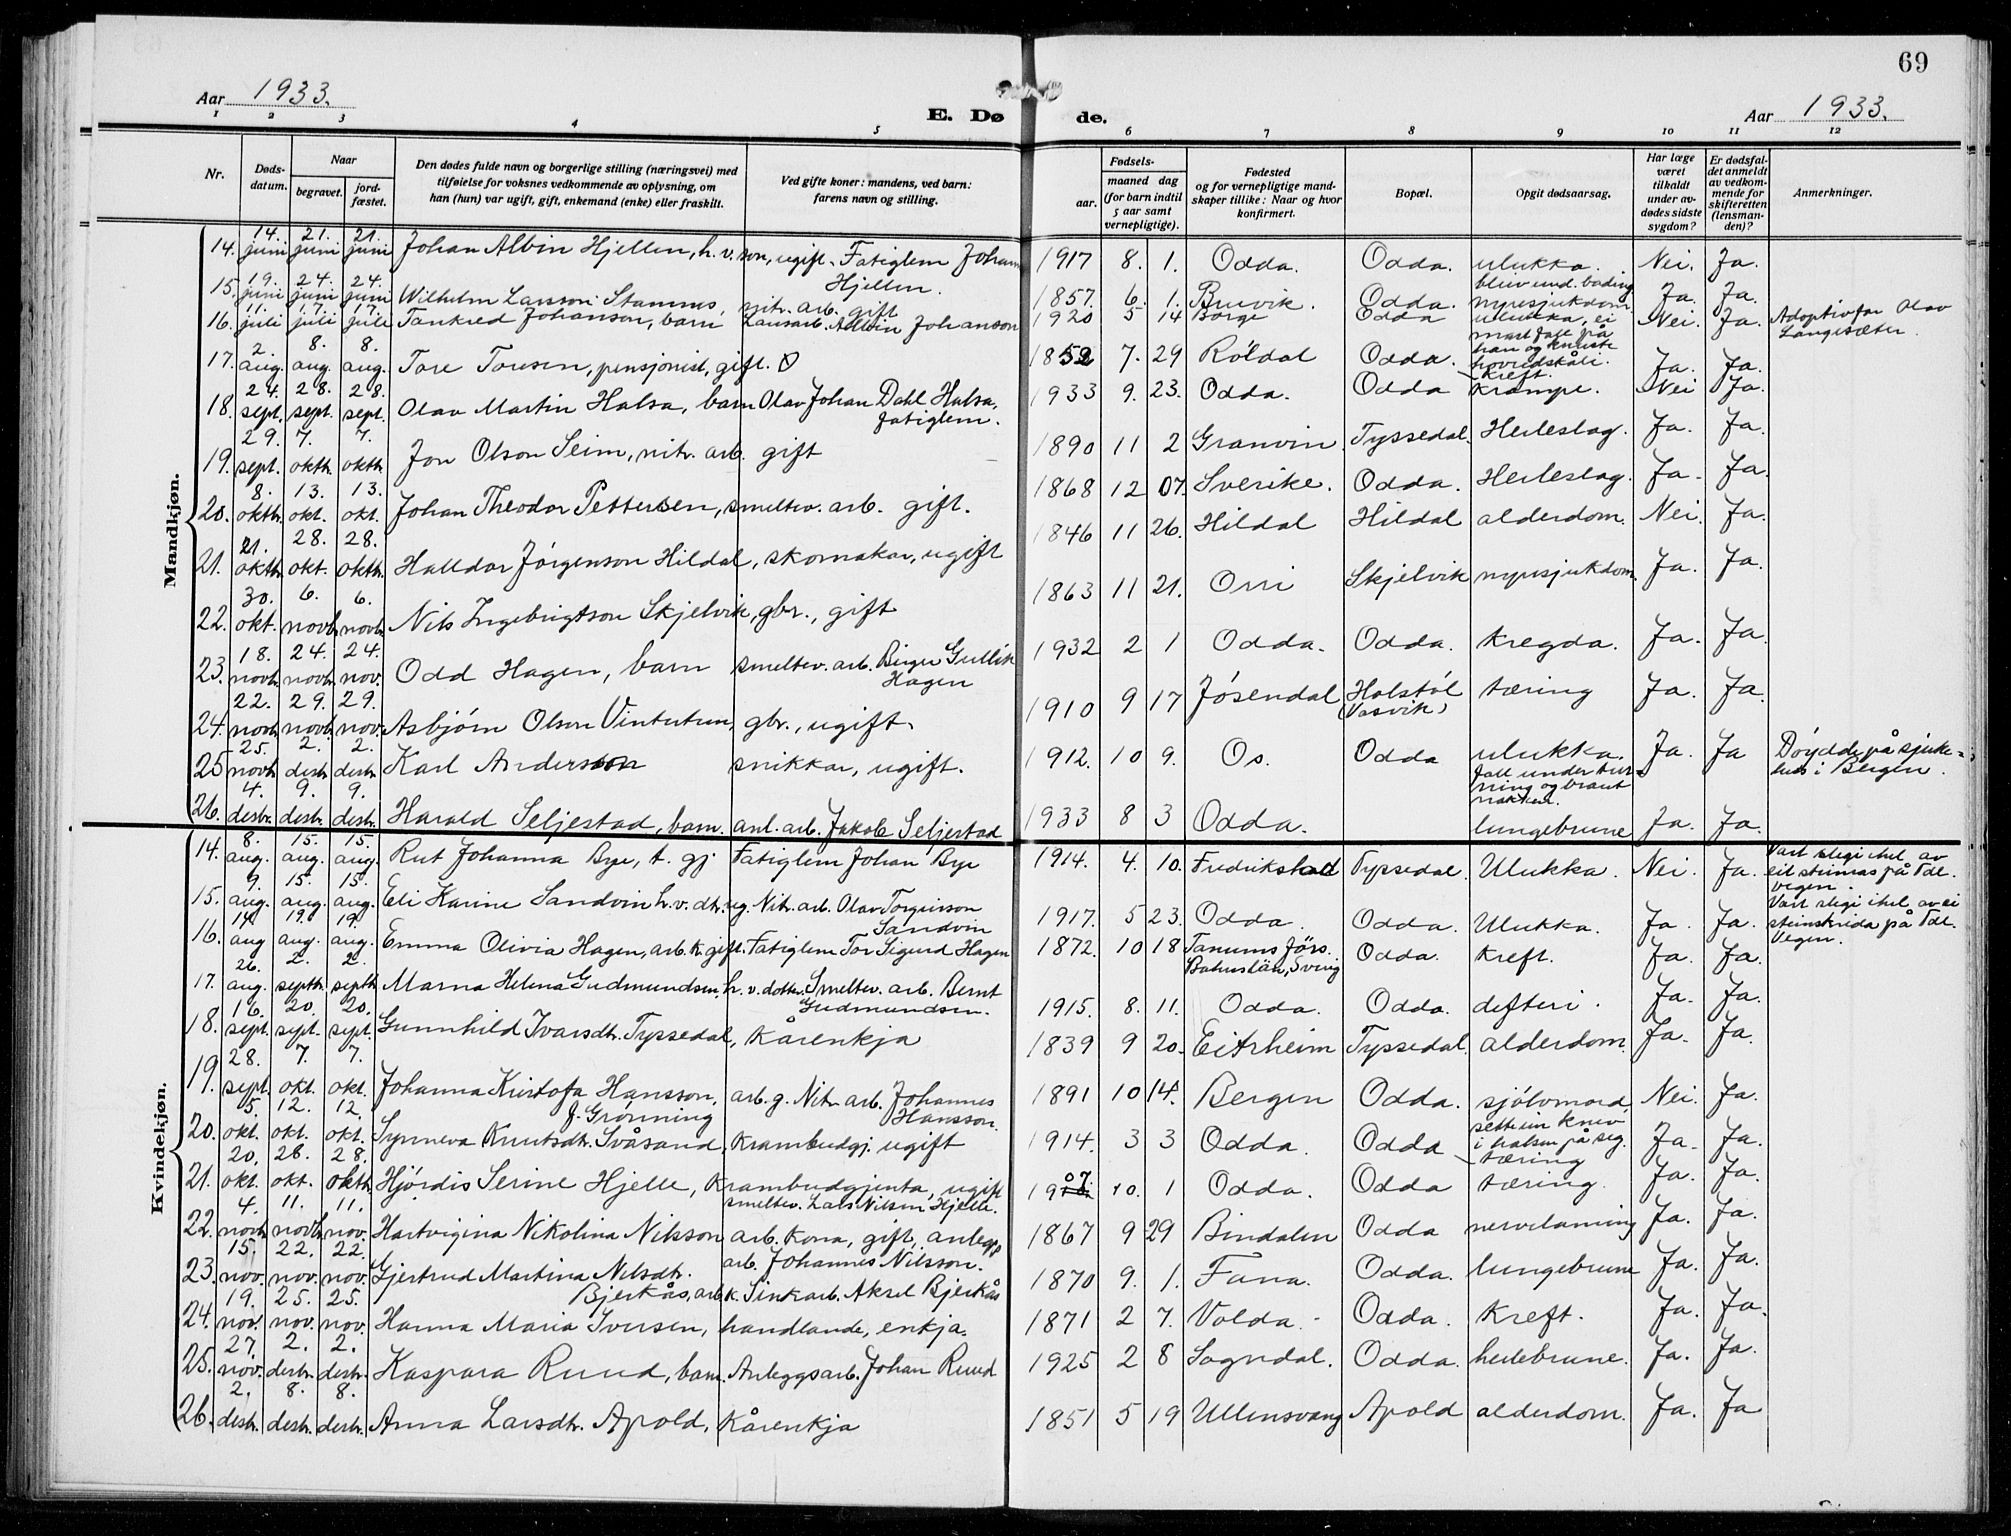 69
Aar 1933.
E. Døde.
Aar 1933.
1 2 3 4 5 6 7 8 9 10 11 12
Nr.
Døds-datum.
Naar
begravet.
jord-fæstet.
Den dødes fulde navn og borgerlige stilling (næringsvei) med
tilføielse for voksnes vedkommende av oplysning, om
han (hun) var ugift, gift, enkemand (enke) eller fraskilt.
Ved gifte koner: mandens, ved barn:
farens navn og stilling.
Fødsels-
aar.
maaned dag
(for barn indtil
5 aar samt
vernepligtige).
Fødested
og for vernepligtige mand-
skaper tillike: Naar og hvor
konfirmert.
Bopæl.
Opgit dødsaarsag.
Har læge
været
tilkaldt
under av-
dødes sidste
sygdom?
Er dødsfal-
det anmeldt
av vedkom-
mende for
skifteretten
(lensman-
den)?
Anmerkninger.
Mandkjøn.
14. 14. juni 21. juni 21. juni Johan Albin Hjellen, h. v. son, ugift. Fatiglem Johan Hjellen. 1917 8. 1. Odda. Odda. ulukka. bleiv und. bading Nei. Ja.
15. 19. juni 24. juni 24. juni Wilhelm Larsson Stamnes, nitr. arb. gift 1857. 6. 1. Bruvik. Odda. nyresjukdom. Ja. Ja.
16. 11. juli 17. juli 17. juli Tankred Johanson, barn Lausarb. Albin Johanson 1920 5 14 Borge Odda ulukka, ei mast fall på han og knuste hovudskåli. Nei. Ja. Adoptivfar Olav Langesæter.
17. 2. aug. 8. aug. 8. aug. Tore Toresen, pensjonist, gift. 1852 7. 29 Röldal Odda. kreft. Ja. Ja.
18. 24. sept. 28. sept. 28. sept. Olav Martin Halsa, barn Olav Johan Dahl Halsa, fatiglem. 1933 9. 23. Odda. Odda krampe. Nei Ja.
19. 29. sept. 7. oktb. 7. oktb. Jon Olson Seim, nitr. arb. gift 1890 11 2 Granvin Tyssedal. Herteslag. Ja. Ja.
20. 8. oktb. 13. okt. 13. okt. Johan Theodor Pettersen, smeltev. arb. gift. 1868 12 07. Sverike. Odda. Herteslag. Ja. Ja.
21. 21. oktb. 28. okt. 28. oktb. Halldor Jørgenson Hildal, skomakar, ugift 1846 11 26. Hildal Hildal alderdom. Nei. Ja.
22. 30. okt. 6. novb. 6. novb. Nils Ingebrigtson Skjelvik, gbr., gift 1863 11 21. Orri Skjelvik nyresjukdom. Ja. Ja.
23. 18. novb. 24. novb. 24. nov. Odd Hagen, barn smeltev. arb. Birger Gullik Hagen 1932 2 1 Odda. Odda. kregda. Ja. Ja.
24. 22. novb. 29. novb. 29. nov. Asbjørn Olson Vintertun, gbr., ugift. 1910 9 17 Jøsendal Holstøl (Vasvik) tæring Ja. Ja.
25 25. novb. 2. desb. 2. desb. Karl Anderson snikkar, ugift. 1912. 10 9. Os. Odda ulukka. fall under turning og braut nakken. Ja. Ja Døydde på sjukehus i Bergen.
26. 4. desbr. 9. desb. 9. desb. Harald Seljestad, barn. anl. arb. Jakob Seljestad 1933 8 3 Odda. lungebrune Ja. Ja.
Kvindekjøn.
14. 8. aug. 15. aug. 15. aug. Rut Johanna Bye, t. gj. Fatiglem Johan Bye 1914. 4. 10. Fredrikstad Tyssedal. Ulukka. Nei. Ja. Vart slegi ihel av eit steinras på Tdl. vegen.
15. 9. aug. 15. aug. 15. aug. Eli Karine Sandvin h. v. dtr. ug. Nitr. arb. Olav Torgeirsson Sandvin 1917. 5 23. Odda. Odda. Ulukka. Ja. Ja. Vart slegi ihel av ei steinskrida på Tdl. Vegen.
16. 14 aug 19. aug. 19. aug. Emma Olivia Hagen, arb. k. gift. Fatiglem Tor Sigurd Hagen 1872. 10 18 Tanums Förs. Bohuslän, Sverig Odda. kreft. Ja. Ja.
17. 26. aug. 2. septb. 2. septb Marna Helena Gudmundsen, h. v. dotter. Smeltev. arb. Bernt Gudmundsen. 1915. 8. 11. Odda. Odda. defteri. Ja. Ja.
18. 16. sept. 20. sept. 20. sept. Gunnhild Ivarsdtr. Tyssedal, Kårenkja 1839 9 20. Eitrheim Tyssedal. alderdom. Ja. Ja.
19. 28. sept. 7. okt. 7. okt. Johanna Kristofa Hansson, f. Grønning arb. g. Nitr. arb. Johannes Hansson. 1891 10 14. Bergen Odda. sjølvmord, sette ein kniv i halsen på seg. Nei. Ja.
20. 5 okt. 12. okt. 12. okt. Synneva Knutsdtr. Svåsand, krambudgj. ugift 1914. 3 3 Odda. Odda tæring Ja. Ja.
21. 20. okt. 28. okt. 28. oktb. Hjørdis Serine Hjelle, Krambudgjenta, ugift smeltev. Lars Nilsen Hjelle. 1907 10. 1 Odda. Odda tæring. Ja. Ja.
22. 4. novb 11. novb. 11. nov. Hartvigina Nikolina Nilsson arb. kona, gift, anlegg arb. Johannes Nilsson. 1867 9 29 Bindalen Odda nervelaming Ja. Ja.
23. 15. nov. 22. nov. 22. nov. Gjertrud Martina Nilsdtr. Bjerkås, arb. k. Sinkarb. Aksel Bjerkås 1870 9. 1. Fana. Odda. lungebrune Ja. Ja.
24. 19. nov. 25. nov. 25. nov. Hanna Maria Iversen, handlande, enkja. 1871 2 7. Volda. Odda. kreft. Ja. Ja.
25. 27. nov. 2. desb. 2. desb. Kaspara Ruud, barn. Anleggsarb. Johan Ruud 1925 2 8 Sogndal. Odda. heilebrune. Ja. Ja.
26. 2. desb. 8. desb. 8. desb. Anna Larsdtr. Apold, Kårenkja 1851 5 19 Ullensvang Apold alderdom. Ja. Ja